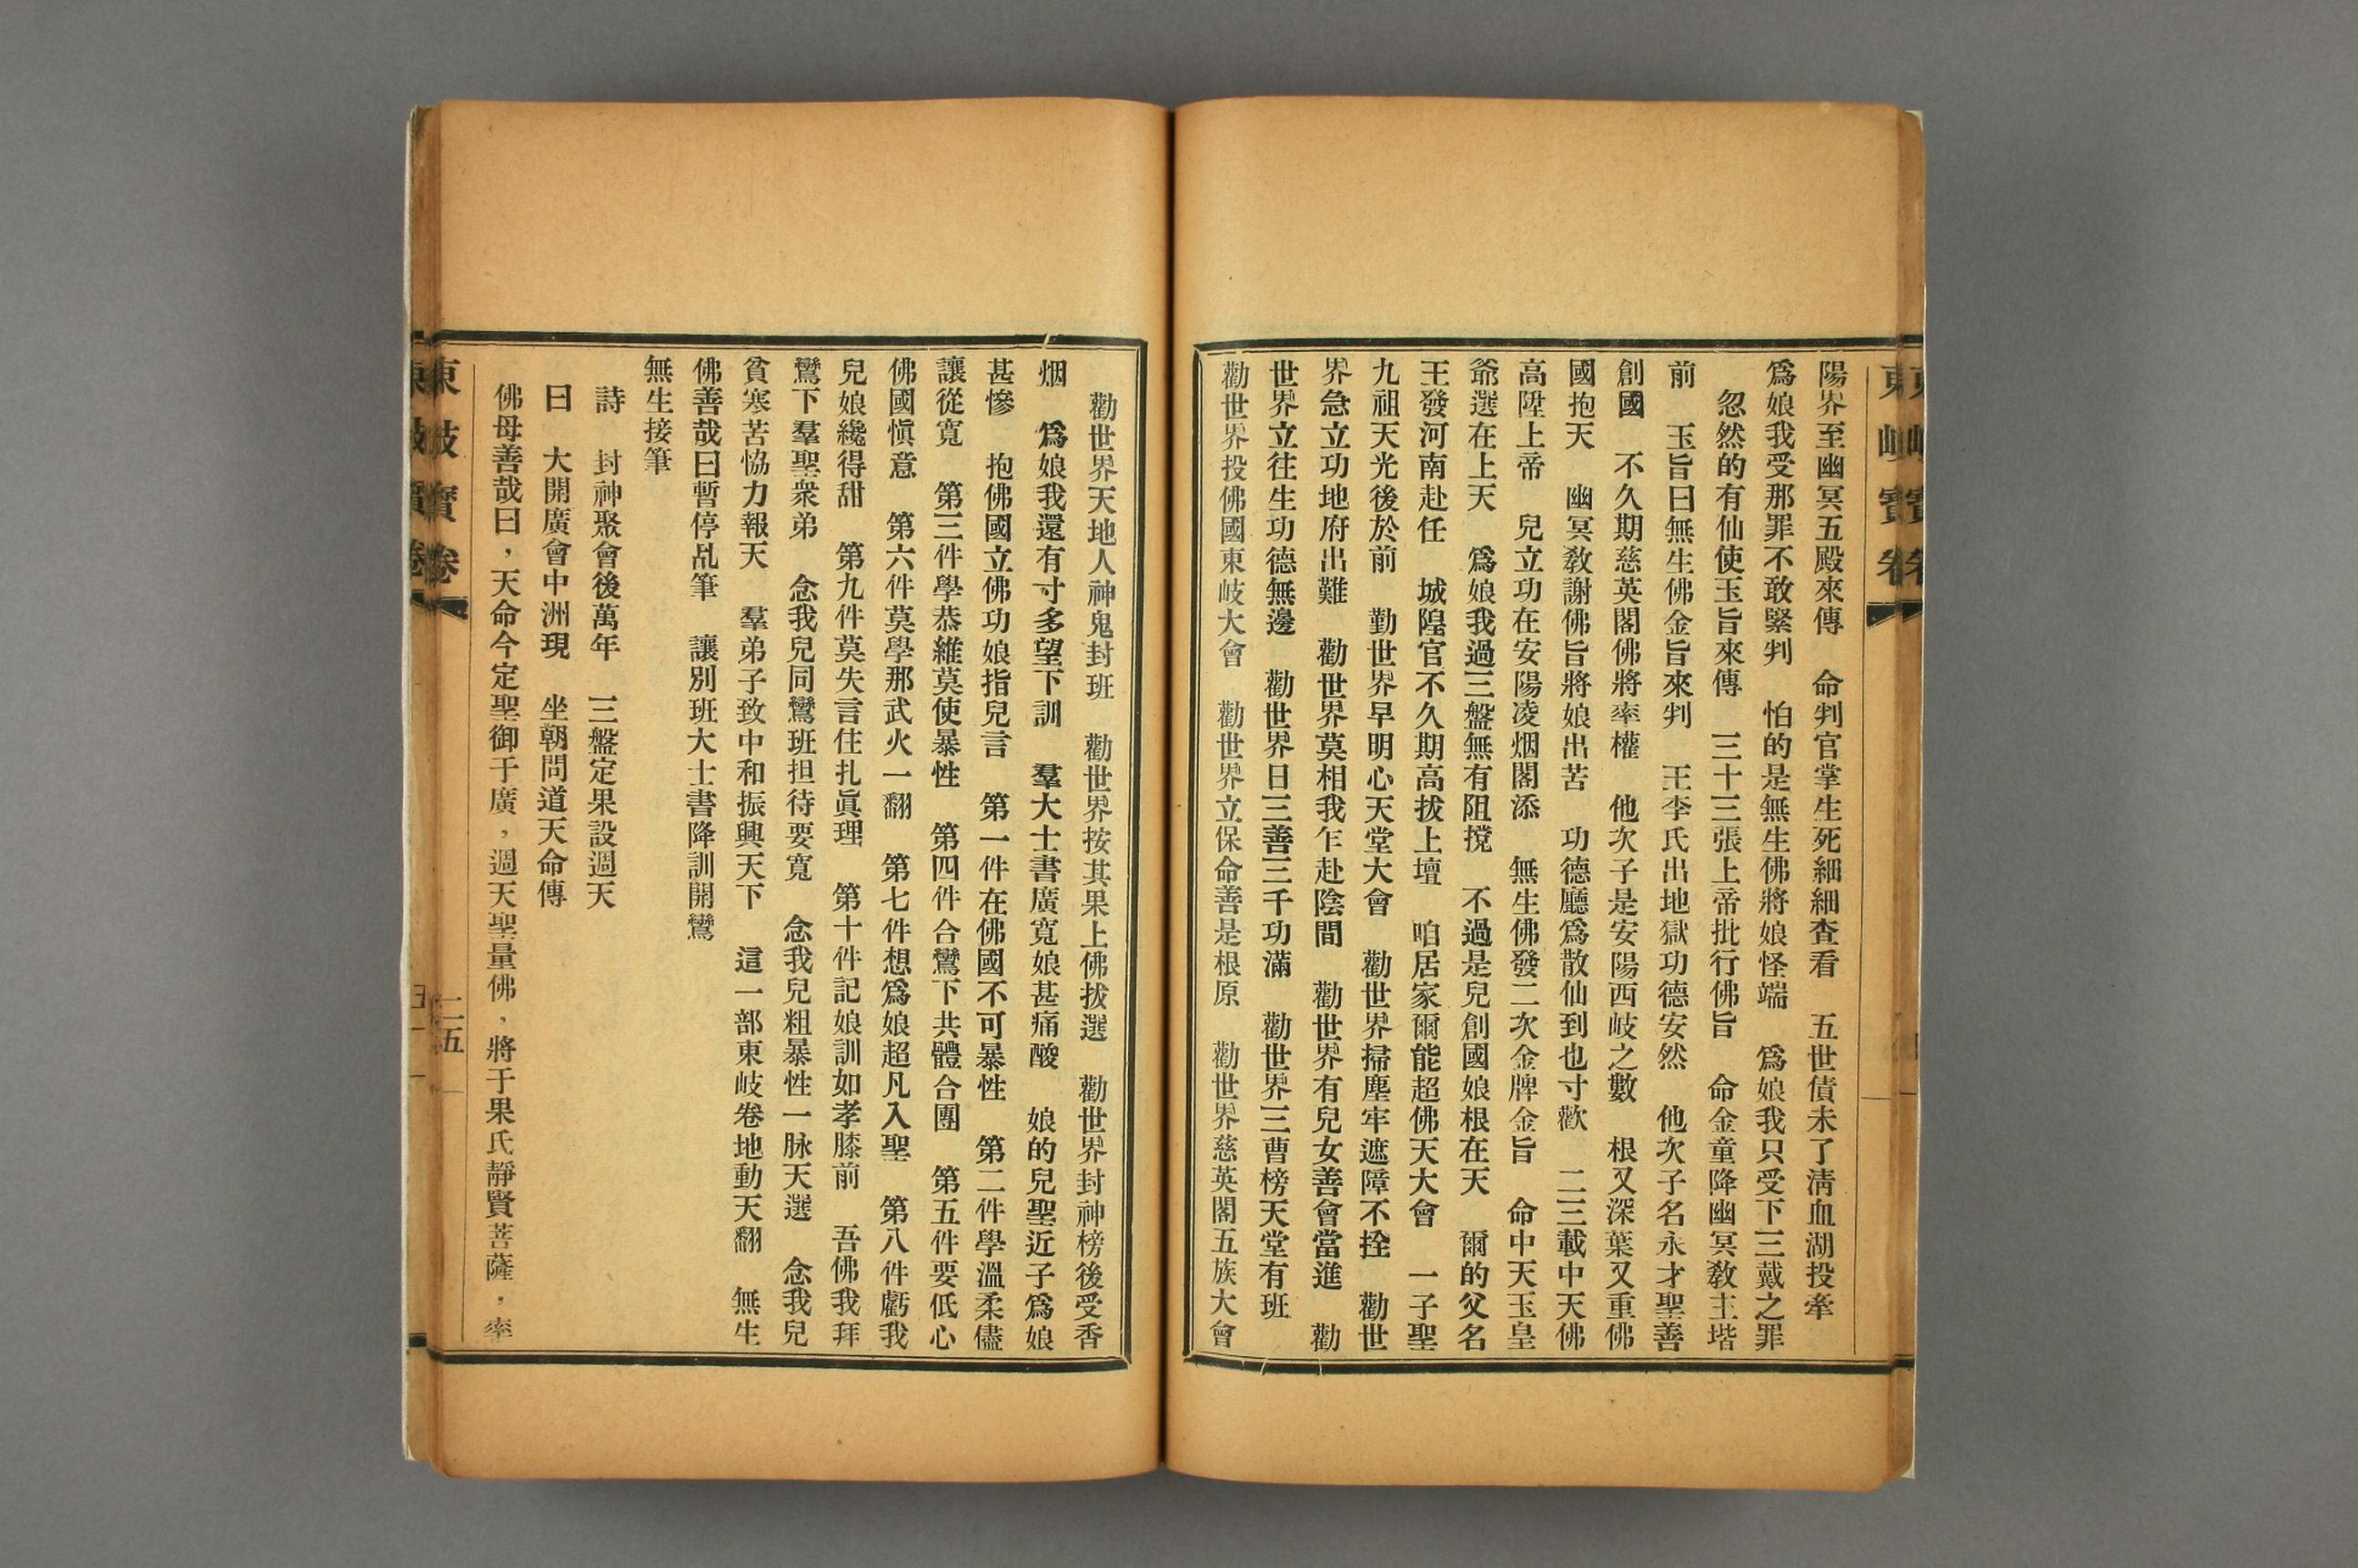 東岐寶卷
陽界至幽冥五殿來傳　命判官掌生死細細查看　五世債未了淸血湖投牽
爲娘我受那罪不敢緊判　怕的是無生佛將娘怪端　爲娘我只受下三戴之罪
忽然的有仙使玉旨來傳　三十三張上帝批行佛旨　命金童降幽冥敎主堦
前　玉旨曰無生佛金旨來判　王李氏出地獄功德安然　他次子名永才聖善
創國　不久期慈英閣佛將率權　他次子是安陽西岐之數　根又深葉又重佛
國抱天　幽冥敎謝佛旨將娘出苦　功德廳爲散仙到也寸歡　二三載中天佛
高陞上帝　兒立功在安陽凌烟閣添　無生佛發二次金牌金旨　命中天玉皇
爺選在上天　爲娘我過三盤無有阻撓　不過是兒創國娘根在天　爾的父名
王發河南赴任　城隍官不久期高拔上壇　咱居家爾能超佛天大會　一子聖
九祖天光後於前　勤世界早明心天堂大會　勸世界掃塵牢遮障不拴　勸世
界急立功地府出難　勸世界莫相我乍赴陰間　勸世界有兒女善會當進　勸
世界立往生功德無邊　勸世界日三善三千功滿　勸世界三曹榜天堂有班
勸世界投佛國東岐大會　勸世界立保命善是根原　勸世界慈英閣五族大會
勸世界天地人神鬼封班　勸世界按其果上佛拔選　勸世界封神榜後受香
烟　爲娘我還有寸多望下訓　羣大士書廣寬娘甚痛酸　娘的兒聖近子爲娘
甚慘　抱佛國立佛功娘指兒言　第一件在佛國不可暴性　第二件學溫柔儘
讓從寬　第三件學恭維莫使暴性　第四件合鸞下共體合團　第五件要低心
佛國愼意　第六件莫學那武火一翻　第七件想爲娘超凡入聖　第八件虧我
兒娘纔得甜　第九件莫失言住扎眞理　第十件記娘訓如孝膝前　吾佛我拜
鸞下羣聖衆弟　念我兒同鸞班担待要寬　念我兒粗暴性一脉天選　念我兒
貧寒苦恊力報天　羣弟子致中和振興天下　這一部東岐卷地動天翻　無生
佛善哉曰暫停乩筆　讓別班大士書降訓開鸞
無生接筆
詩　封神聚會後萬年　三盤定果設週天
曰　大開廣會中洲現　坐朝問道天命傳
佛母善哉曰，天命今定聖御于廣，週天聖量佛，將于果氏靜賢菩薩，率
東岐寶卷
二五